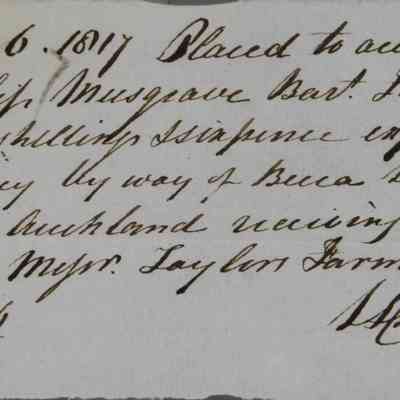 6. 1817 Placed to
Musgrave Bart.
shillings & sixpence
by way of Becca
Auckland receiving
Messrs. Taylors Farm